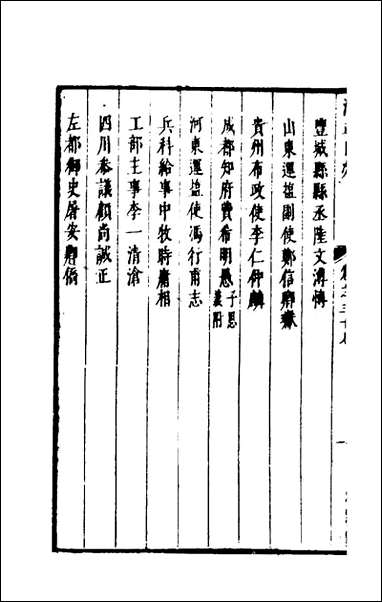 豐城縣縣丞陸文溥博
山東運鹽副使鄭信卿
貴州布政使李仁仲麟
成都知府賈希明愚子思襄附
河東運鹽使馮行甫志
兵科給事中牧時庸相
工部主事李一清滄
四川參議顧尚誠正
左都御史屠安卿僑